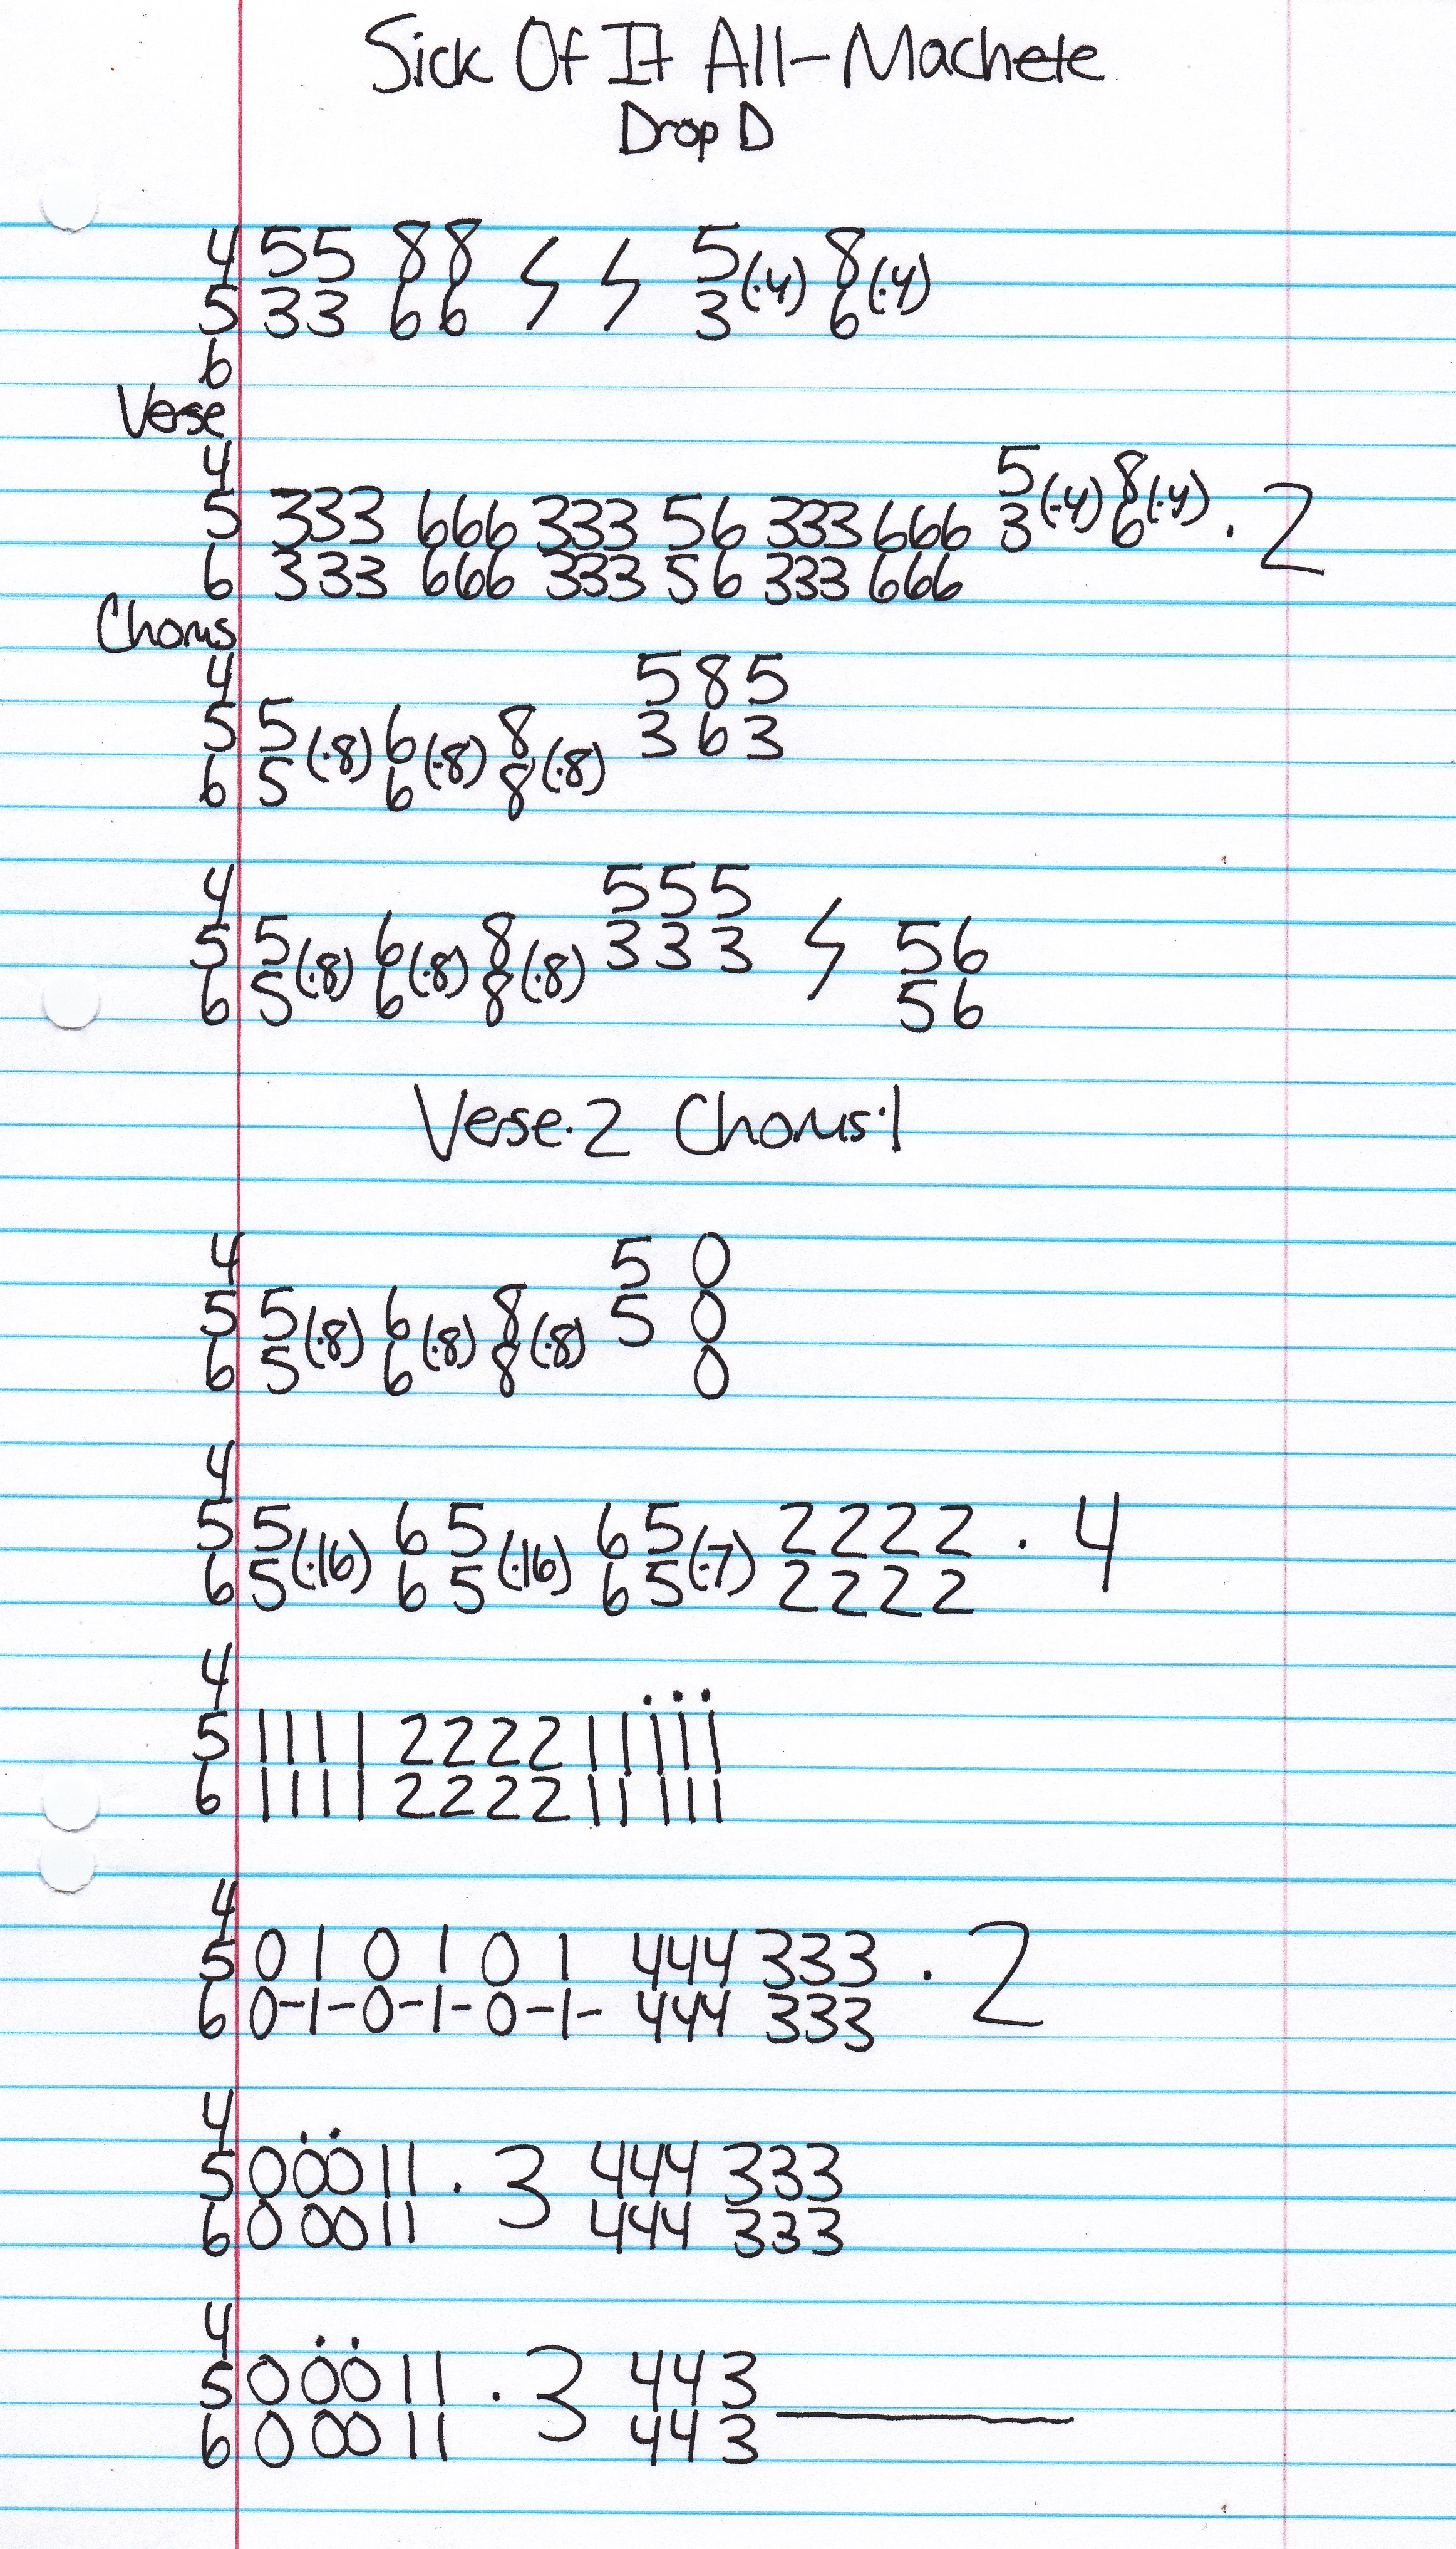 Sick Of It All-Machete
Drop D
4 55 88 ϟ ϟ 5(·4) 8(·4)
5 33 66 3 6
6
Verse
4 5(·4) 8(·4)
5 333 666 333 56 333 666 3 6 · 2
6 333 666 333 56 333 666
Chorus
4 5 8 5
5 5(·8) 6(·8) 8(·8) 3 6 3
6 5 6 8
4 5 5 5
5 5(·8) 6(·8) 8(·8) 3 3 3 ϟ 5 6
6 5 6 8 5 6
Verse·2 Chorus·1
4 5 0
5 5(·8) 6(·8) 8(·8) 5 0
6 5 6 8 0
4
5 5(·16) 6 5(·16) 6 5(·7) 2 2 2 2 · 4
6 5 6 5 6 5 2 2 2 2
4 . . .
5 1111 2222 11 111
6 1111 2222 11 111
4
5 0 1 0 1 0 1 444 333 · 2
6 0-1-0-1-0-1- 444 333
4 . .
5 0 00 11 · 3 444 333
6 0 00 11 444 333
4 . .
5 0 00 11 · 3 443
6 0 00 11 443